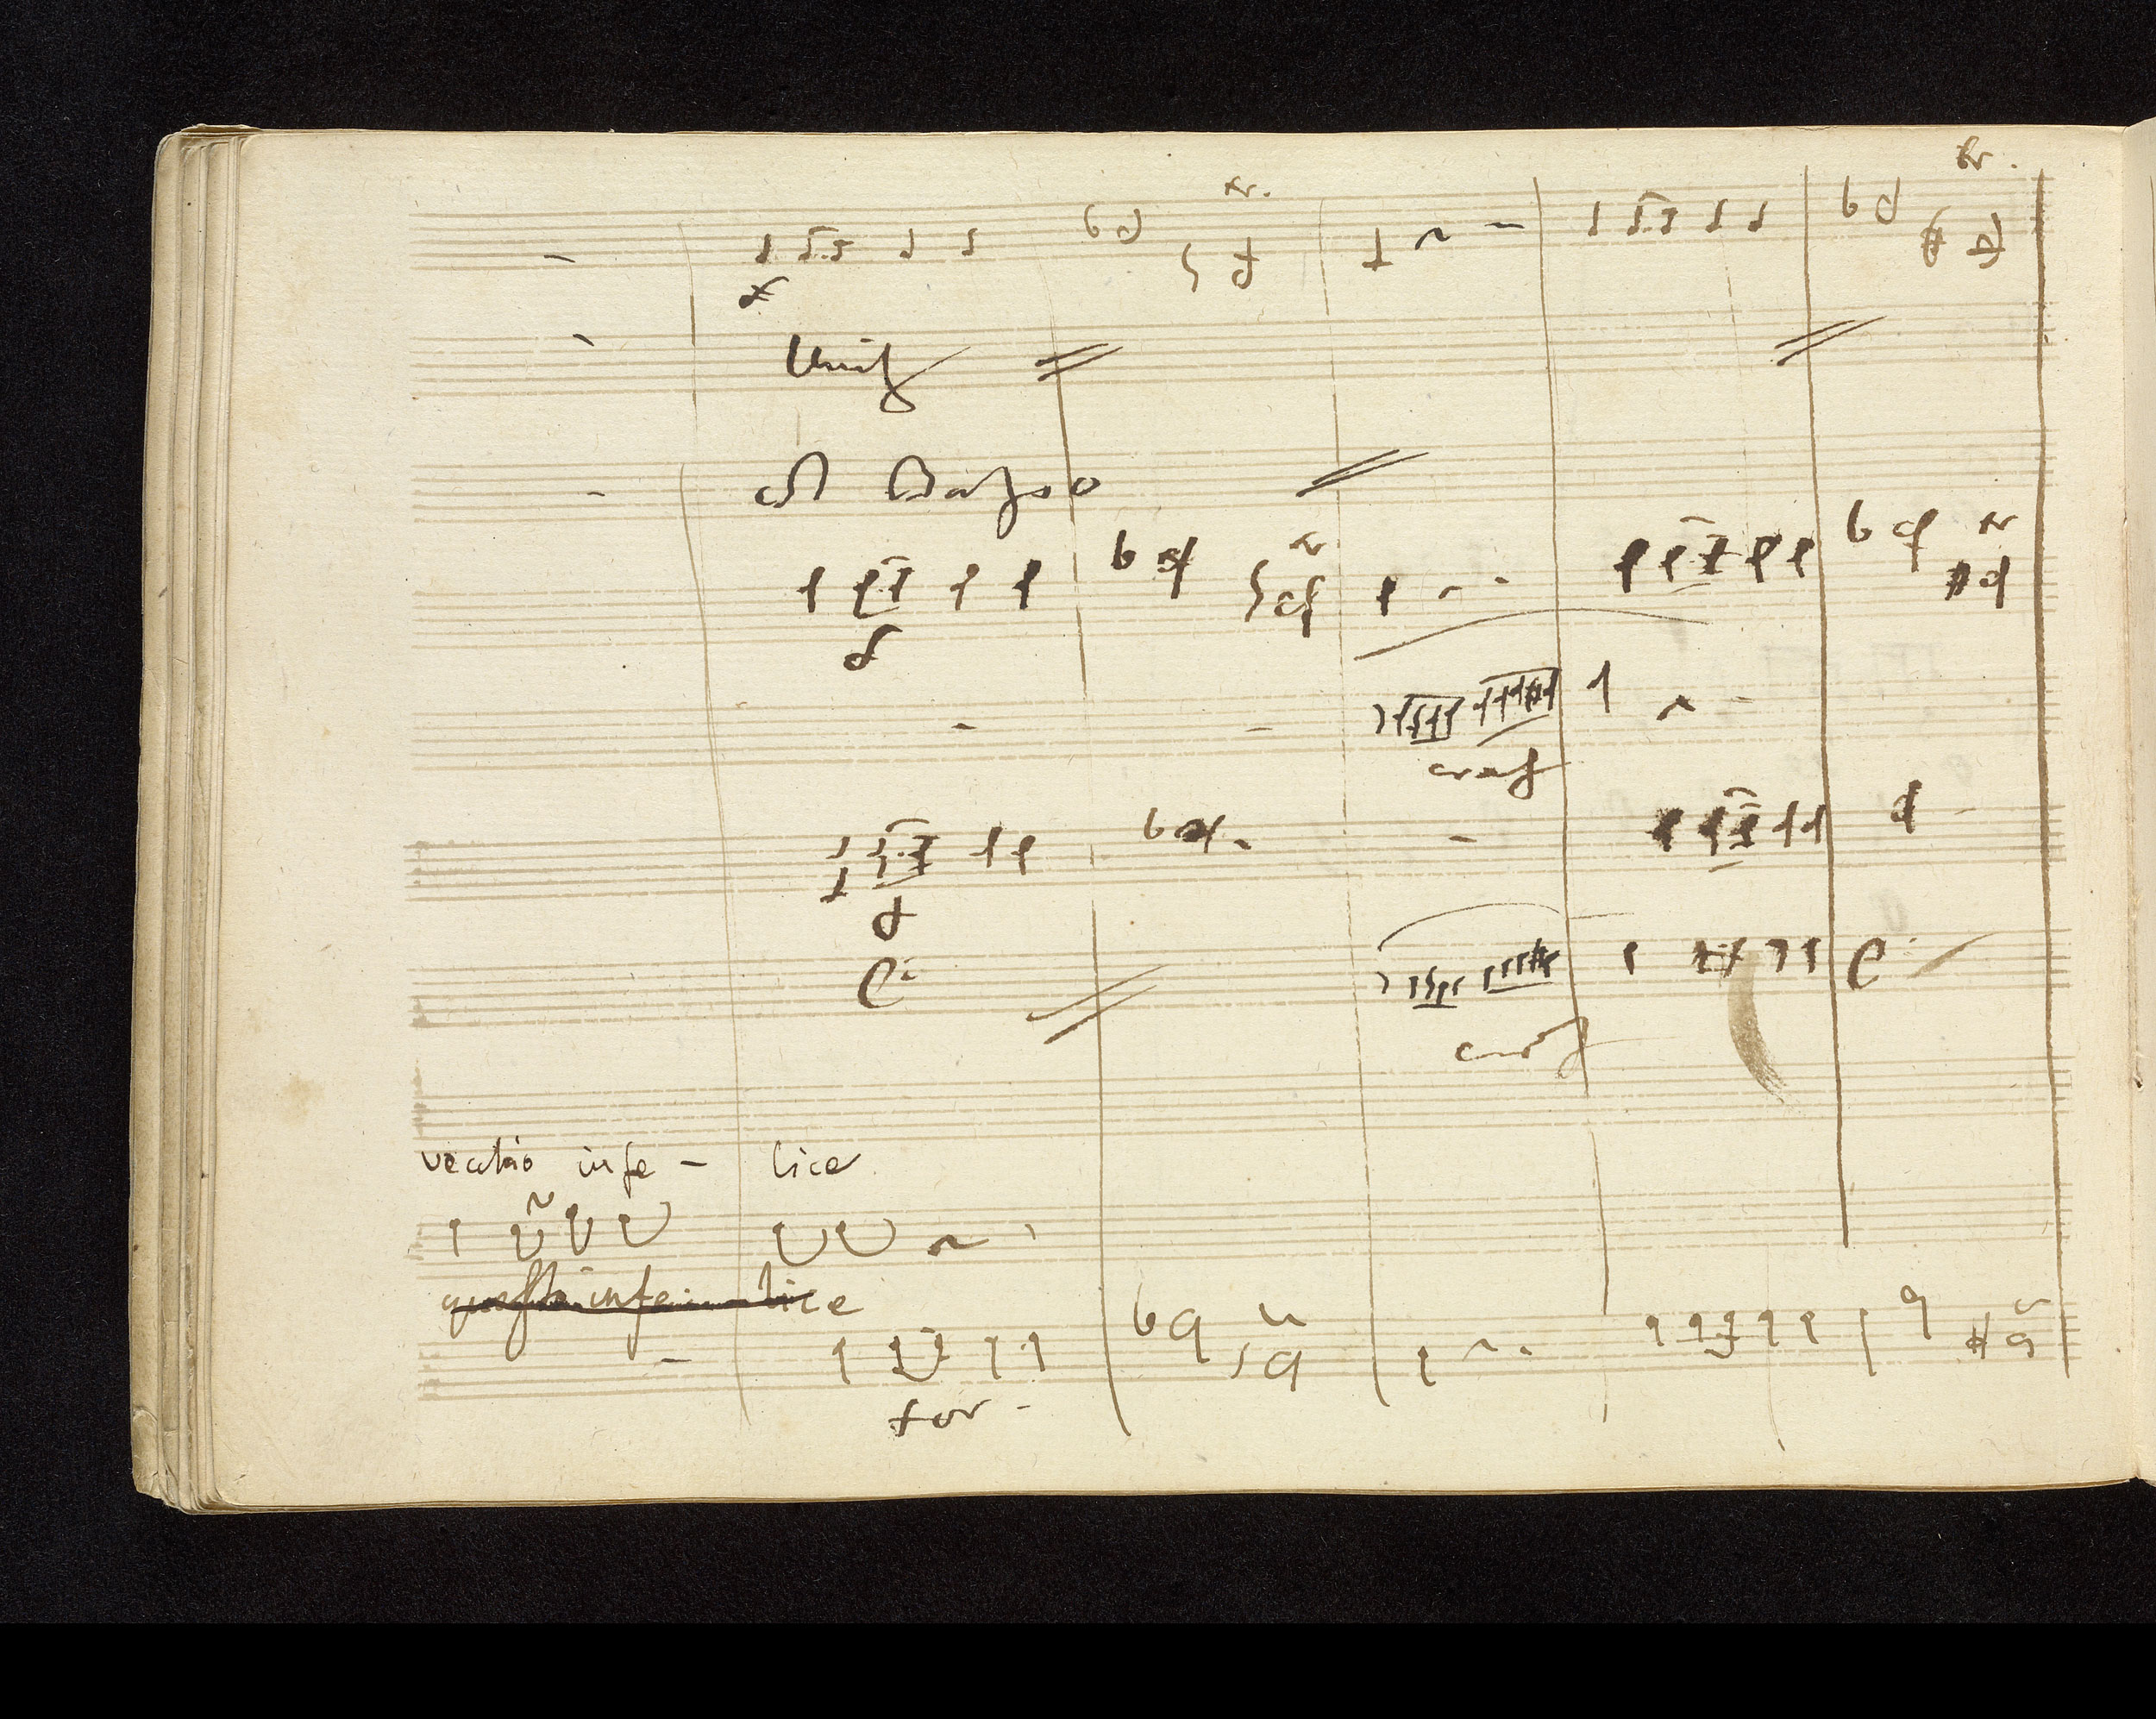 tr. tr.
f
Unis
Col Basso
tr tr
f
cresc
f
cresc
vechio infe - lice
questo infe lice
for -